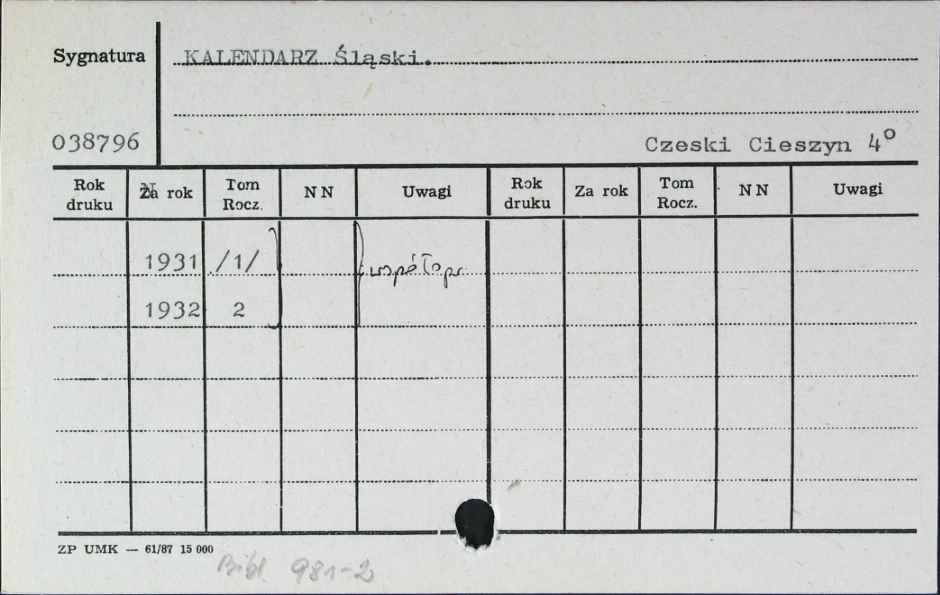 Sygnatura KALENDARZ Śląski.
038796 Czeski Cieszyn 4°
Rok druku Za rok Tom Rocz. NN Uwagi Rok druku Za rok Tom Rocz. NN Uwagi
1931 /1/ współopr.
1932 2
ZP UMK — 61/87 15 000
Bibl. 981-2